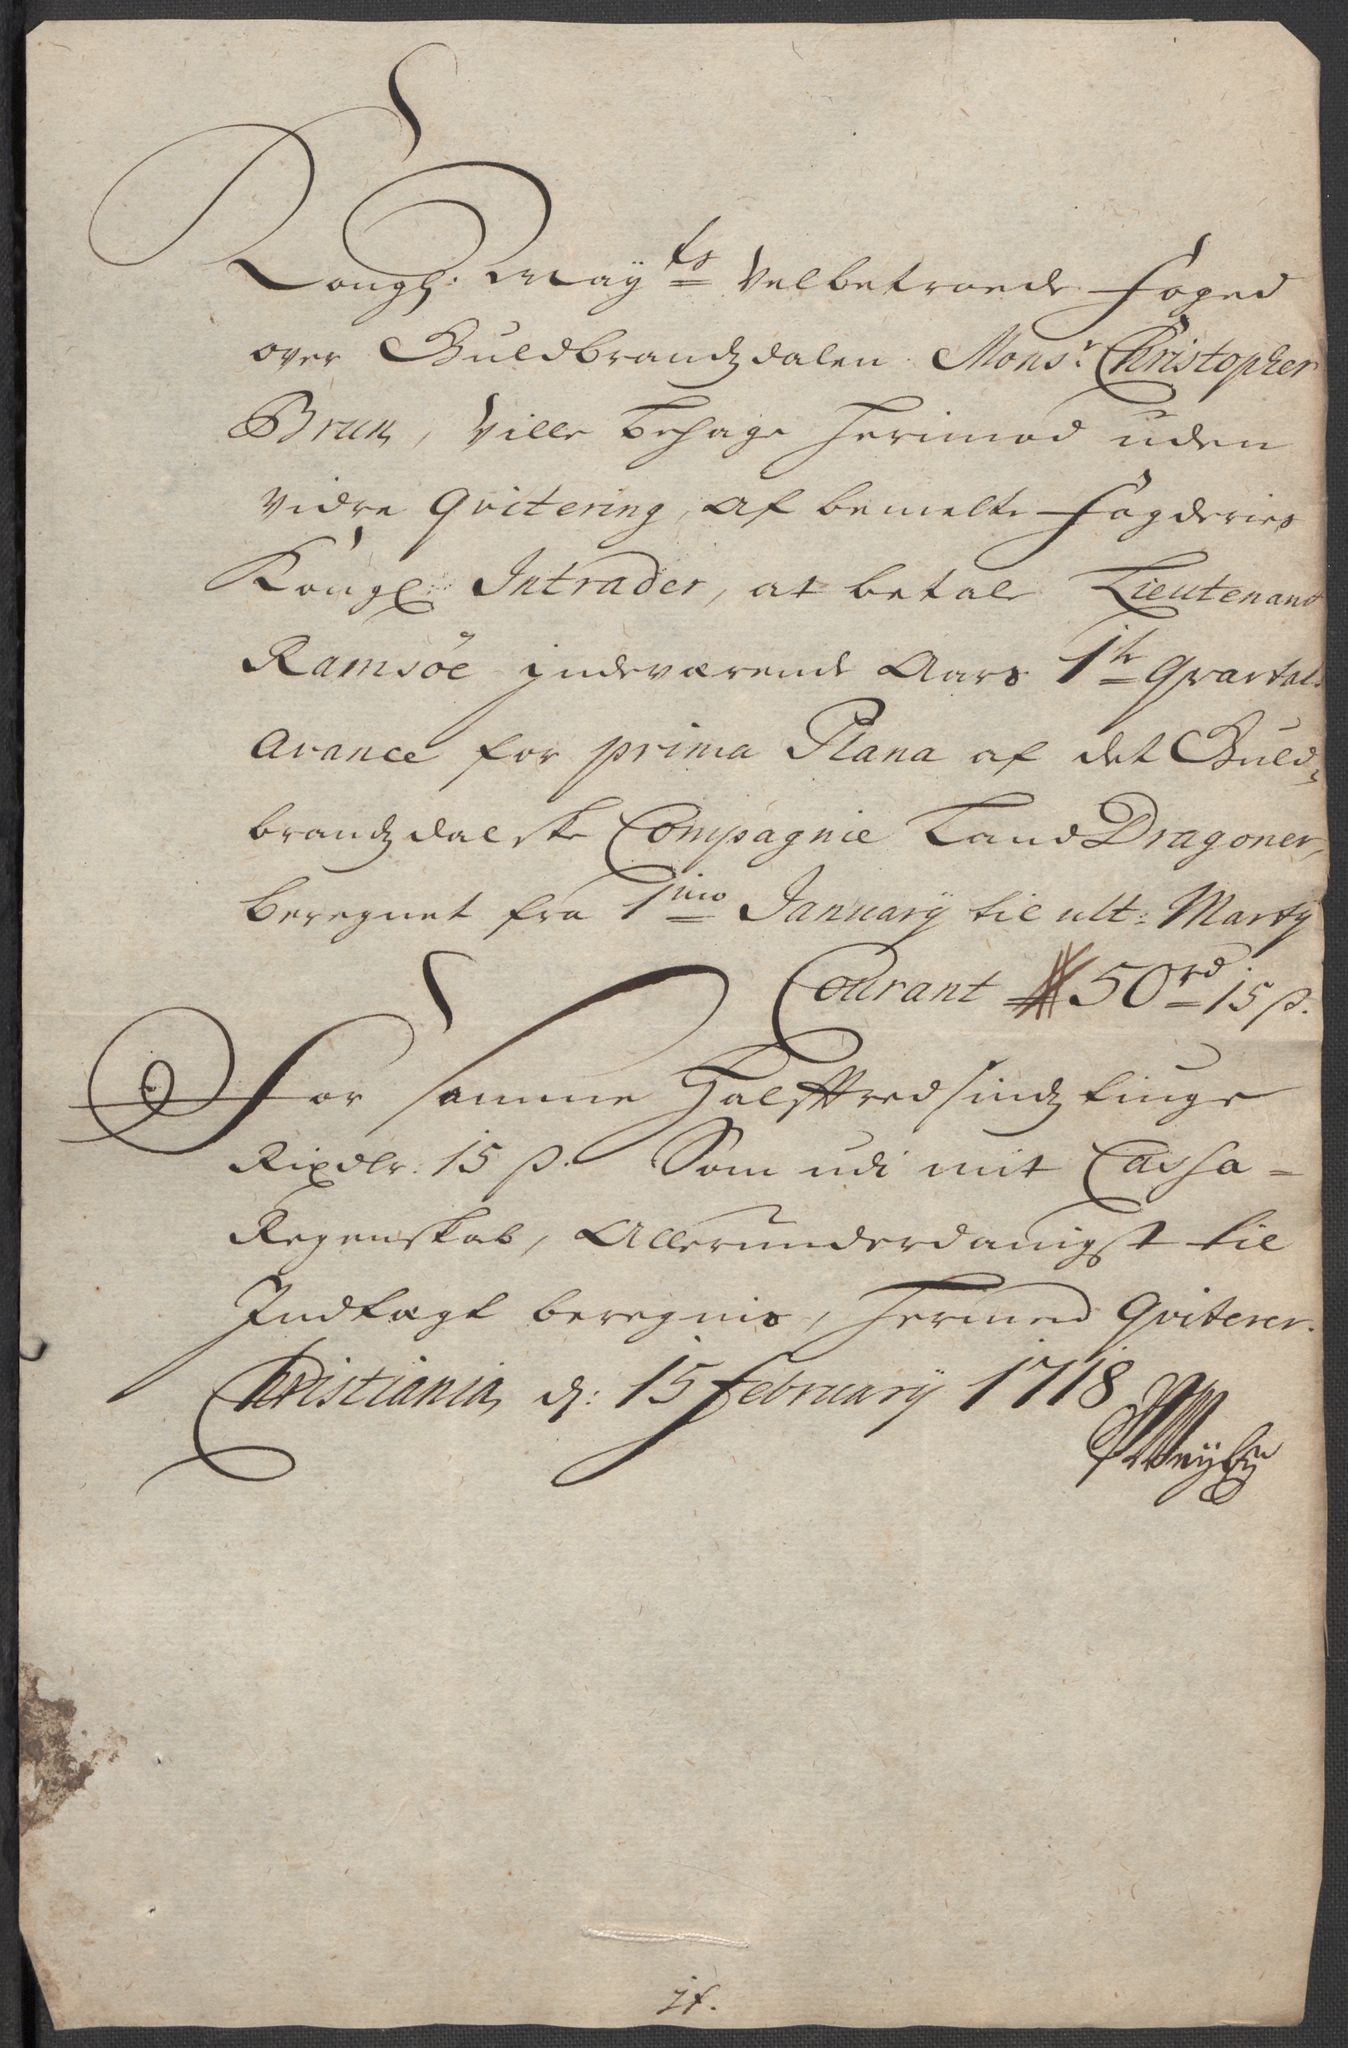 Kongl: Mayts Velbetroede Foged
over Guldbrandzdalen Monsr. Christopher
Brun, Ville behage herimod uden
vidre Qvitering, af bemelte Fogderies
Kongl: Intrader, at betale Lieutenant
Ramsøe indeværende Aars 1te Qvartals
Avance for prima Plana af det Guld-
brandzdalske Compagnie Land Dragoner,
beregnet fra 1mo January til ult: Marty
Courant 50rd 15 ß.
For samme Halfftredsindz tiuge
Rixdlr: 15 ß. Som udi mit Cassa-
Regenskab, Allerunderdanigst til
Indtægt beregnis, hermed Qviterer.
Christiania d: 15 February 1718